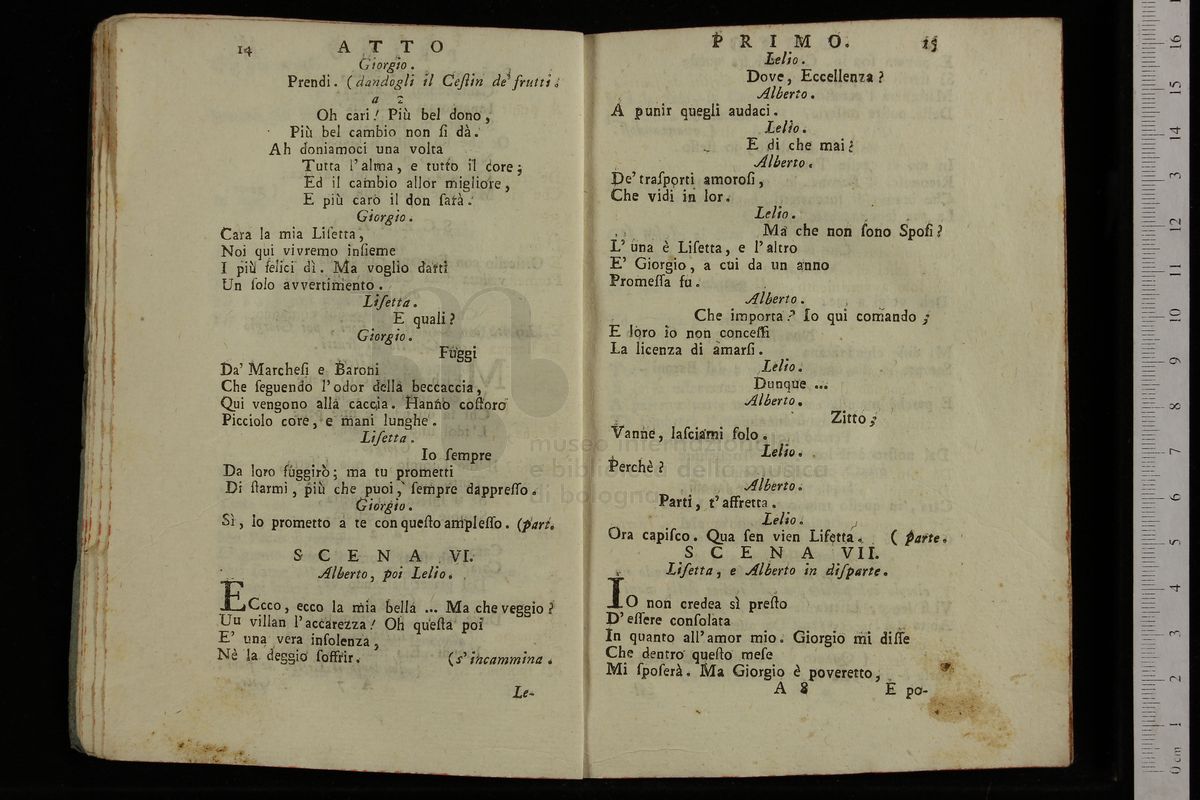 14 ATTO
Giorgio.
Prendi. (dandogli il Ceſtin de' frutti.
a 2
Oh cari! Più bel dono,
Più bel cambio non ſi dà.
Ah doniamoci una volta
Tutta l'alma, e tutto il core;
Ed il cambio allor migliore,
E più caro il don ſarà.
Giorgio.
Cara la mia Liſetta,
Noi qui vivremo inſieme
I più felici dì. Ma voglio darti
Un ſolo avvertimento.
Liſetta.
E quali?
Giorgio.
Fuggi
Da' Marcheſi e Baroni
Che ſeguendo l'odor della beccaccia,
Qui vengono alla caccia. Hanno coſtoro
Picciolo core, e mani lunghe.
Liſetta.
Io ſempre
Da loro fuggirò; ma tu prometti
Di ſtarmi, più che puoi, ſempre dappreſſo.
Giorgio.
Sì, lo prometto a te con queſto ampleſſo. (part.
SCENA VI.
Alberto, poi Lelio.
ECcco, ecco la mia bella ... Ma che veggio?
Un villan l'accarezza! Oh queſta poi
E' una vera inſolenza,
Nè la deggio ſoffrir. (s'incammina.
Le-
PRIMO. 15
Lelio.
Dove, Eccellenza?
Alberto.
A punir quegli audaci.
Lelio.
E di che mai?
Alberto.
De' traſporti amoroſi,
Che vidi in lor.
Lelio.
Ma che non ſono Spoſi?
L' una è Liſetta, e l'altro
E' Giorgio, a cui da un anno
Promeſſa fu.
Alberto.
Che importa? Io qui comando;
E loro io non conceſſi
La licenza di amarſi.
Lelio.
Dunque ...
Alberto.
Zitto;
Vanne, laſciami ſolo.
Lelio.
Perchè?
Alberto.
Parti, t'affretta.
Lelio.
Ora capiſco. Qua ſen vien Liſetta. (parte.
SCENA VII.
Liſetta, e Alberto in diſparte.
IO non credea sì preſto
D'eſſere conſolata
In quanto all'amor mio. Giorgio mi diſſe
Che dentro queſto meſe
Mi ſpoſerà. Ma Giorgio è poveretto,
A 8 E po-
museo internazionale
e biblioteca della musica
di bologna
0 cm 1 2 3 4 5 6 7 8 9 10 11 12 13 14 15 16